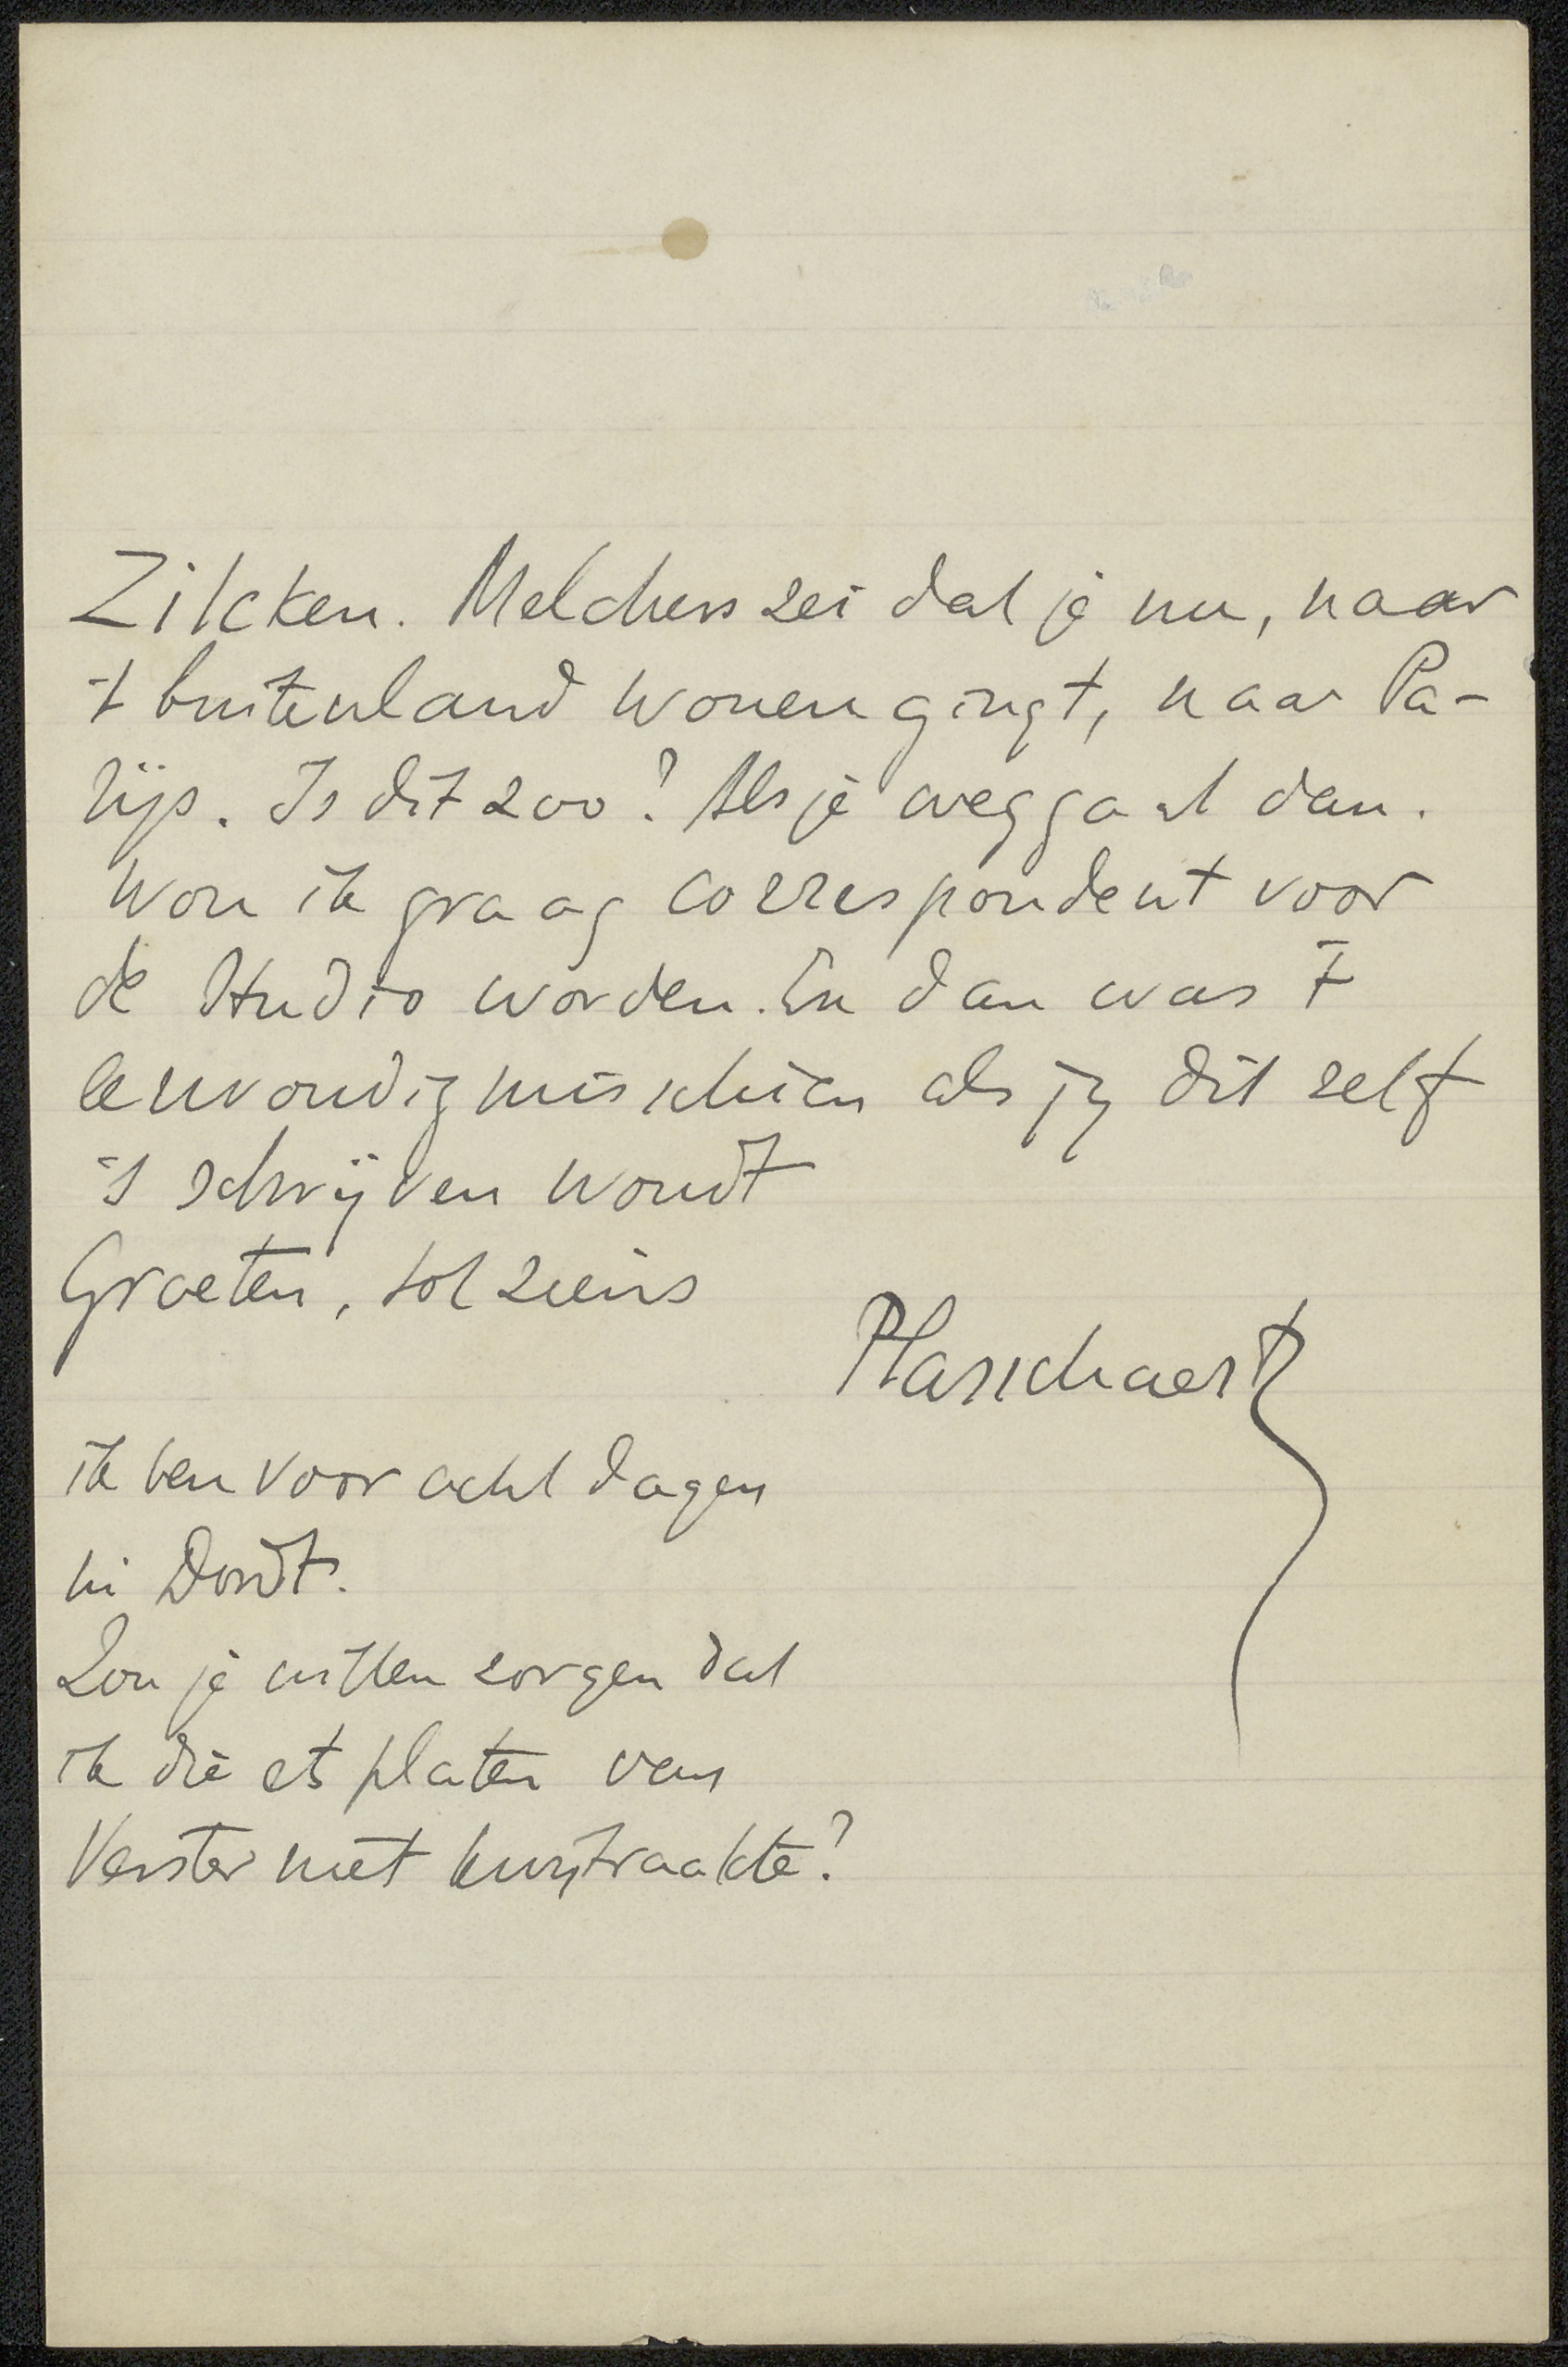 Zilcken. Melchers zei dat je nu, naar
't buitenland wonen gingt, naar Pa-
rijs. Is dit zoo? Als je weggaat dan.
wou ik graag correspondent voor
de Studio worden. En dan was 't
eenvoudig misschien als jij dit zelf
's schrijven woudt
Groeten, tot ziens
Plasschaert
ik ben voor acht dagen
in Dordt.
Zou je willen zorgen dat
ik die etsplaten van
Verster niet kwijtraakte?